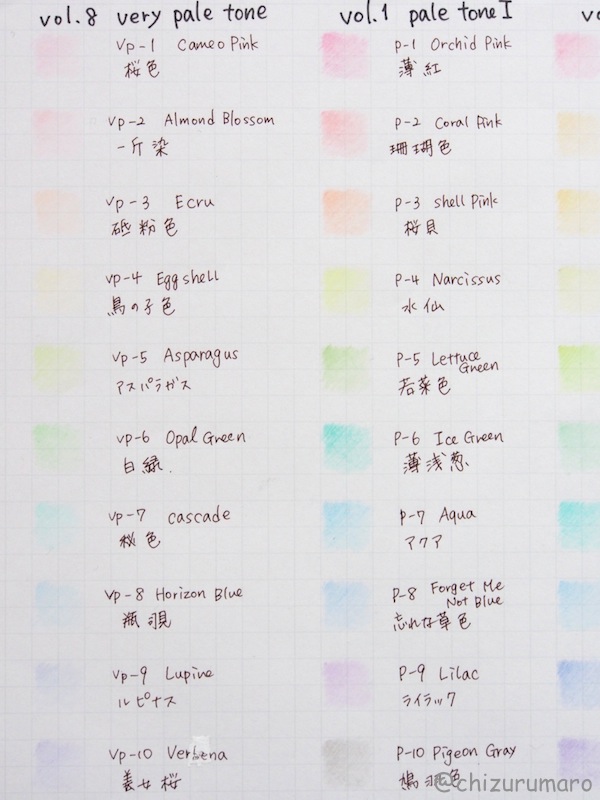 vol.8 very pale tone
vp-1 Cameo Pink
桜色
vp-2 Almond Blossom
一斤染
vp-3 Ecru
砥粉色
vp-4 Eggshell
鳥の子色
vp-5 Asparagus
アスパラガス
vp-6 Opal Green
白緑.
vp-7 cascade
秘色
vp-8 Horizon Blue
瓶覗
vp-9 Lupine
ルピナス
vp-10 Verbena
美女桜
vol.1 pale tone I
p-1 Orchid Pink
薄紅
p-2 Coral Pink
珊瑚色
p-3 shell Pink
桜貝
p-4 Narcissus
水仙
p-5 Lettuce
Green
若菜色
p-6 Ice Green
薄浅葱
p-7 Aqua
アクア
p-8 Forget Me
Not Blue
忘れな草色
p-9 Lilac
ライラック
p-10 Pigeon Gray
鳩羽色
@chizurumaro